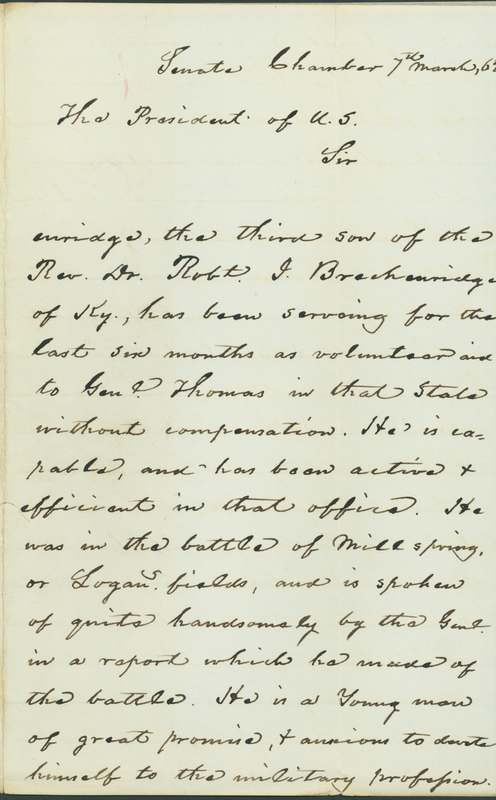 Senate Chamber 7th March, 6
The President of U.S.
Sir
enridge, the third son of the
Rev. Dr. Robt. J. Breckenridge
of Ky., has been serving for the
last six months as volunteer aid
to Genl. Thomas in that State
without compensation. He is ca=
pable, and has been active &
efficient in that office. He
was in the battle of Mill spring,
or Logans. fields, and is spoken
of quite handsomely by the Genl.
in a report which he made of
the battle. He is a Young man
of great promise, & anxious to devote
himself to the military profession.